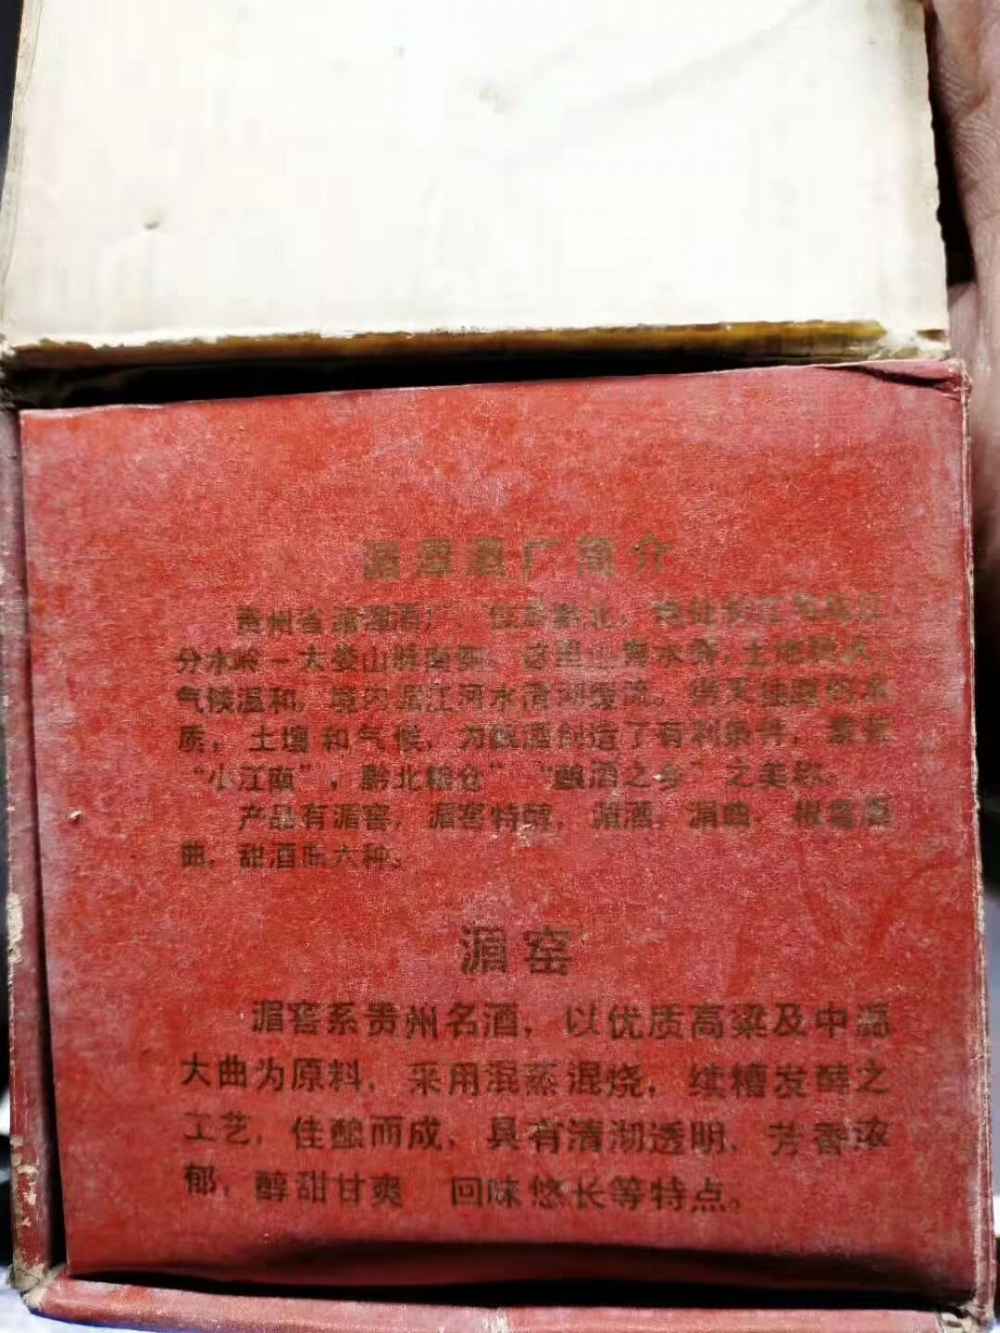 湄潭酒厂简介
贵州省湄潭酒厂，位于黔北，地处长江
分水岭—大娄山脉南麓。这里山青水秀，土地
气候温和，境内湄江河水清湖缓流。得天独厚的水
质，土壤和气候，为酿酒创造了有利条件，素有
“小江南”，黔北粮仓”“酿酒之乡”之美称。
产品有湄窖，湄窖特醇，湄酒，湄曲，
曲，甜酒 六种。
湄窖
湄窖系贵州名酒，以优质高粱及中温
大曲为原料，采用混蒸混烧，续糟发酵之
工艺，佳酿而成，具有清湖透明，芳香浓
郁，醇甜甘爽 回味悠长等特点。